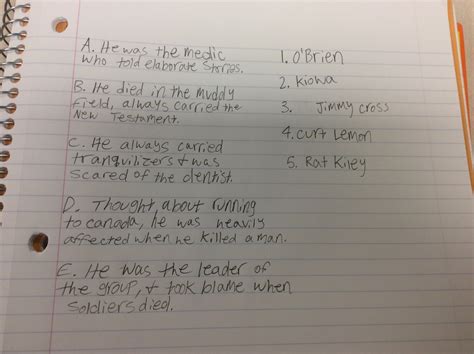 A. He was the medic
who told elaborate stories.
B. He died in the muddy
field, always carried the
New Testament.
C. He always carried
tranquilizers & was
scared of the dentist.
D. Thought about running
to canada, he was heavily
affected when he killed a man.
E. He was the leader of
the group, & took blame when
soldiers died.
1. O'Brien
2. Kiowa
3. Jimmy Cross
4. Curt Lemon
5. Rat Kiley